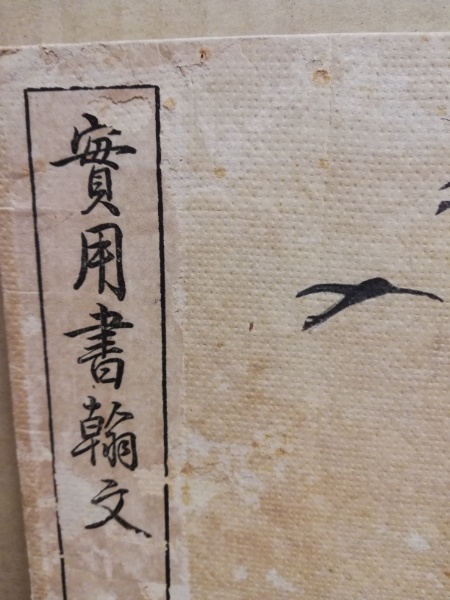 實用書翰文